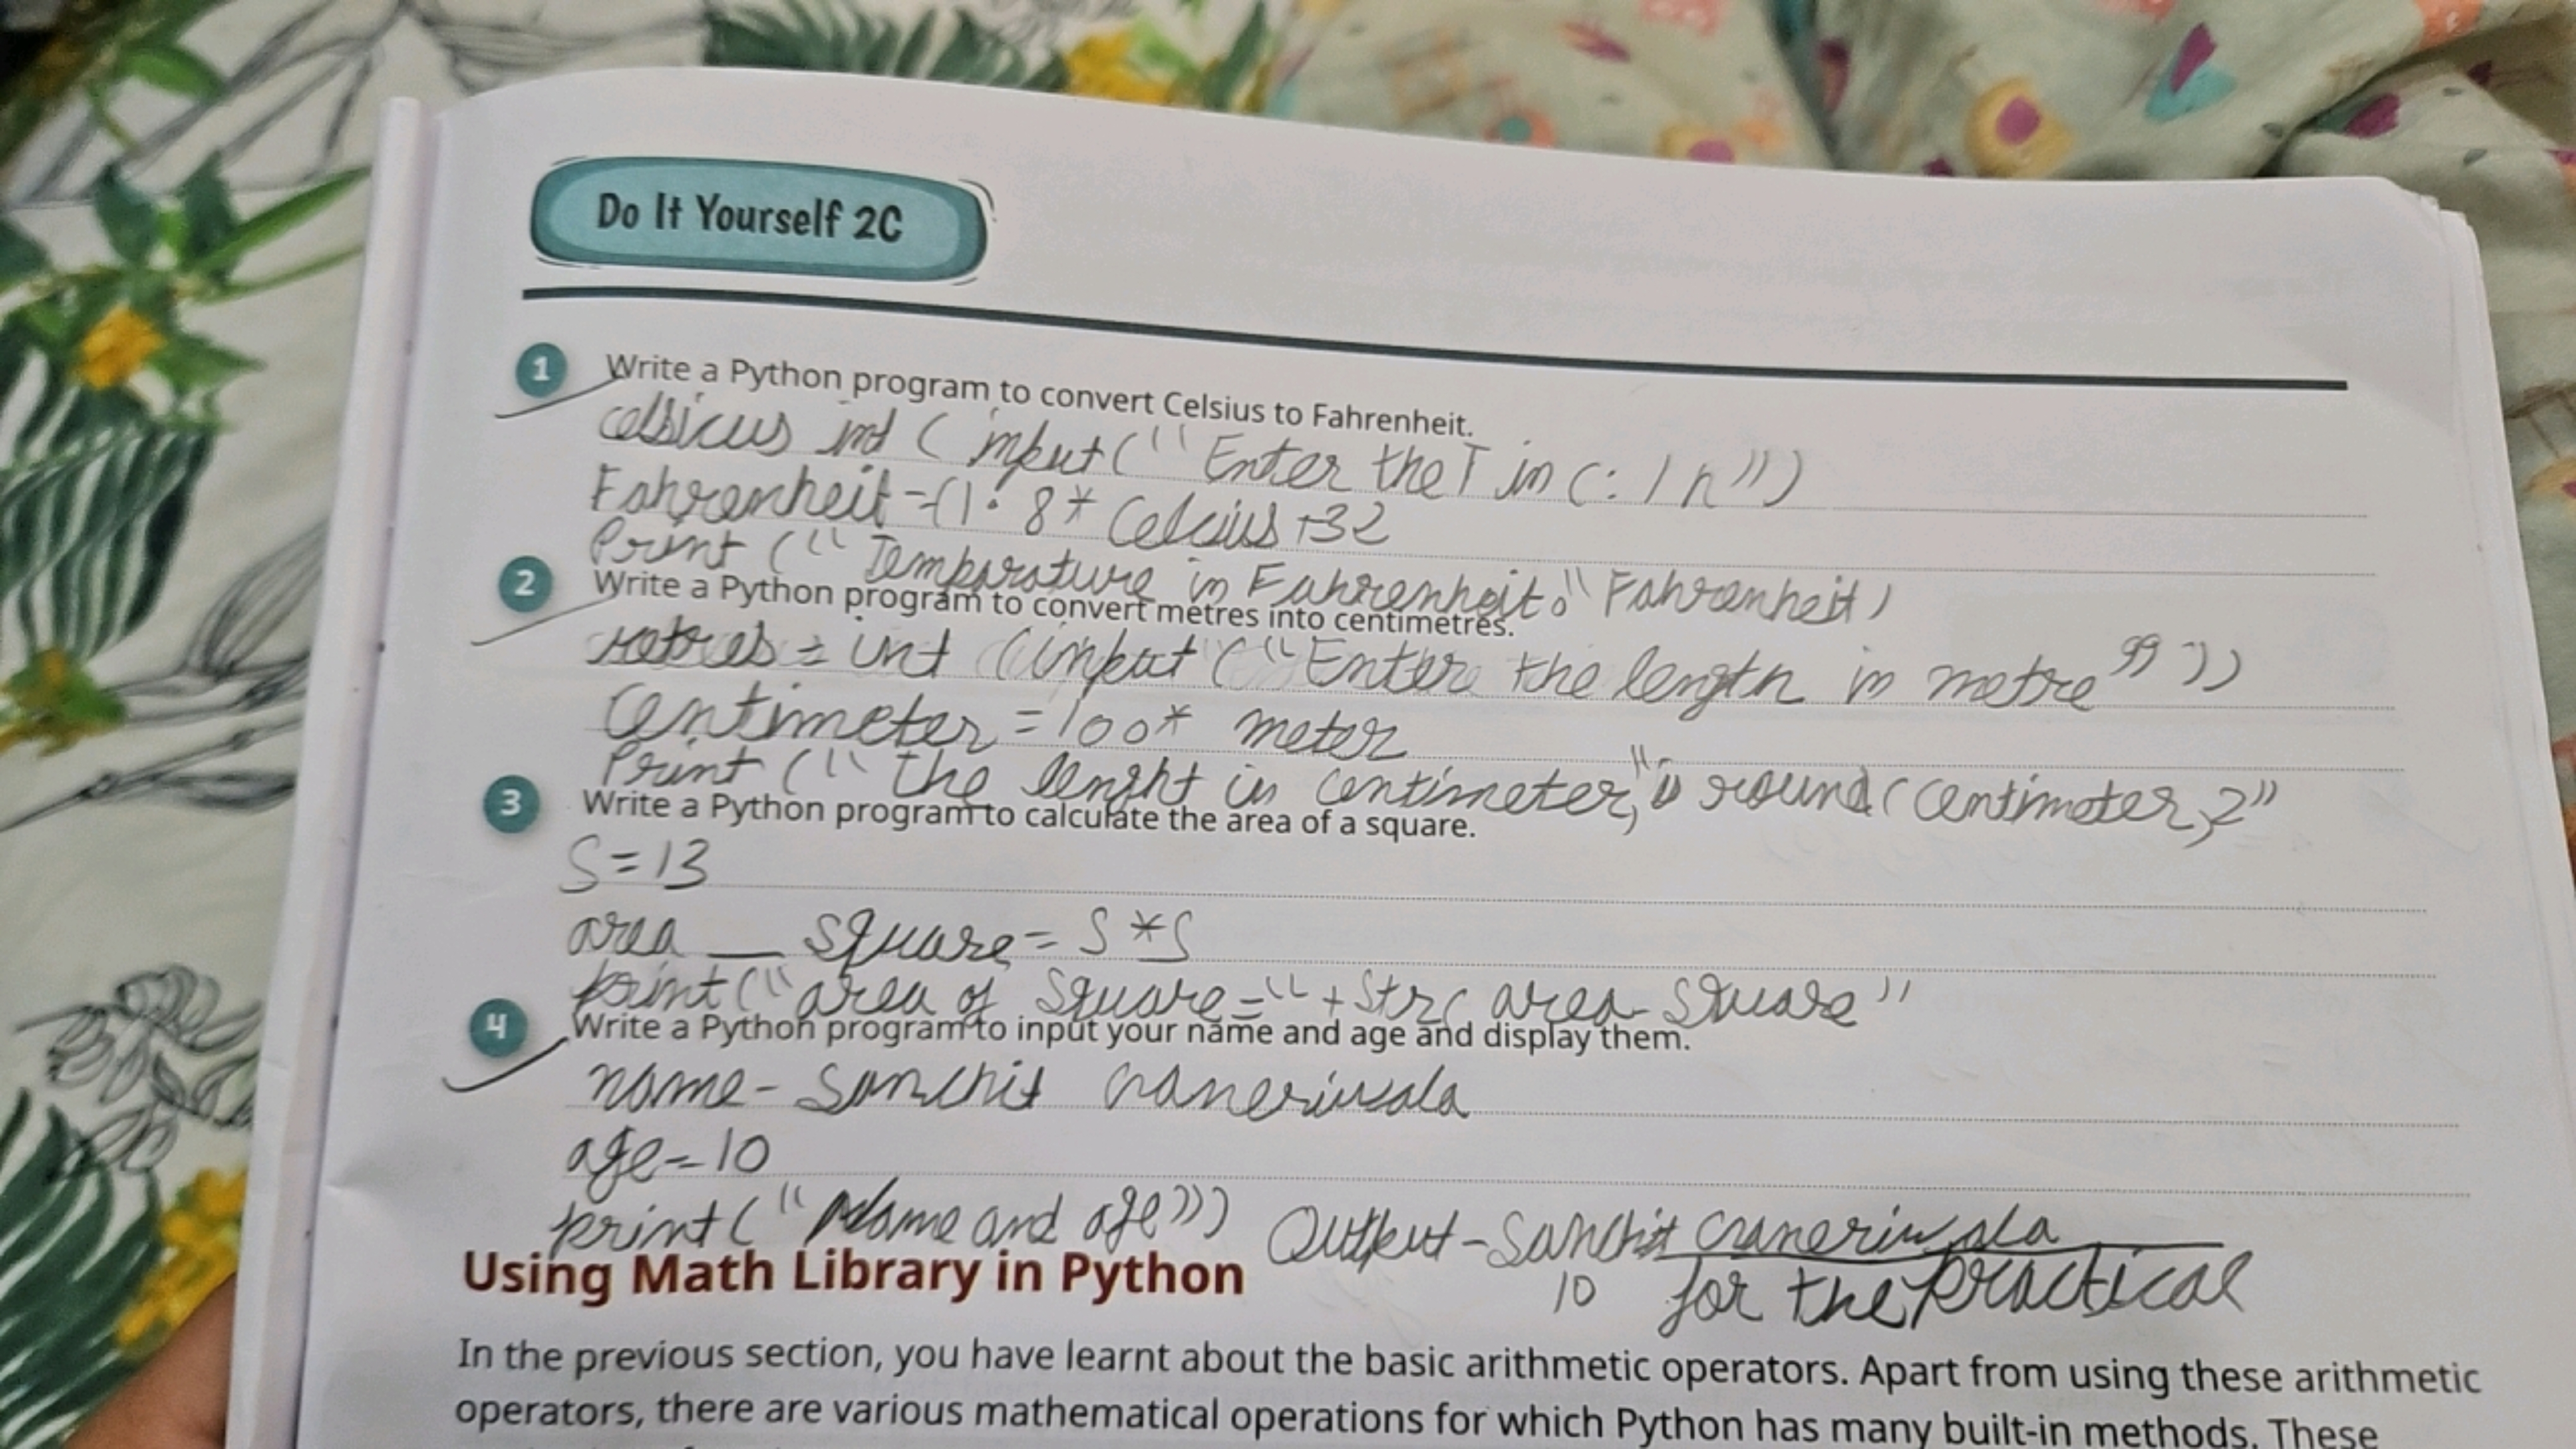 Do It Yourself 2C
1 Write a Python program to convert Celsius to Fahrenheit.
celsicus int ( input (" Enter the T in C: / n")
Fahrenheit =(1.8* Celcius +32
Print (" Temparature in Fahrenheit." Fahrenheit)
2 Write a Python program to convert metres into centimetres.
metres = int (input ("Enter the length in metre"))
Centimeter = 100* meter
Print (" the lenght in centimeter," round (Centimeter,2"
3 Write a Python program to calculate the area of a square.
S=13
area _ square = S*S
print("area of Square=" + Str( area_Square"
4 Write a Python program to input your name and age and display them.
name - Sanchit
age=10
print("Name and age")) Output - Sanchit
10 for the Practical
Using Math Library in Python
In the previous section, you have learnt about the basic arithmetic operators. Apart from using these arithmetic
operators, there are various mathematical operations for which Python has many built-in methods. These